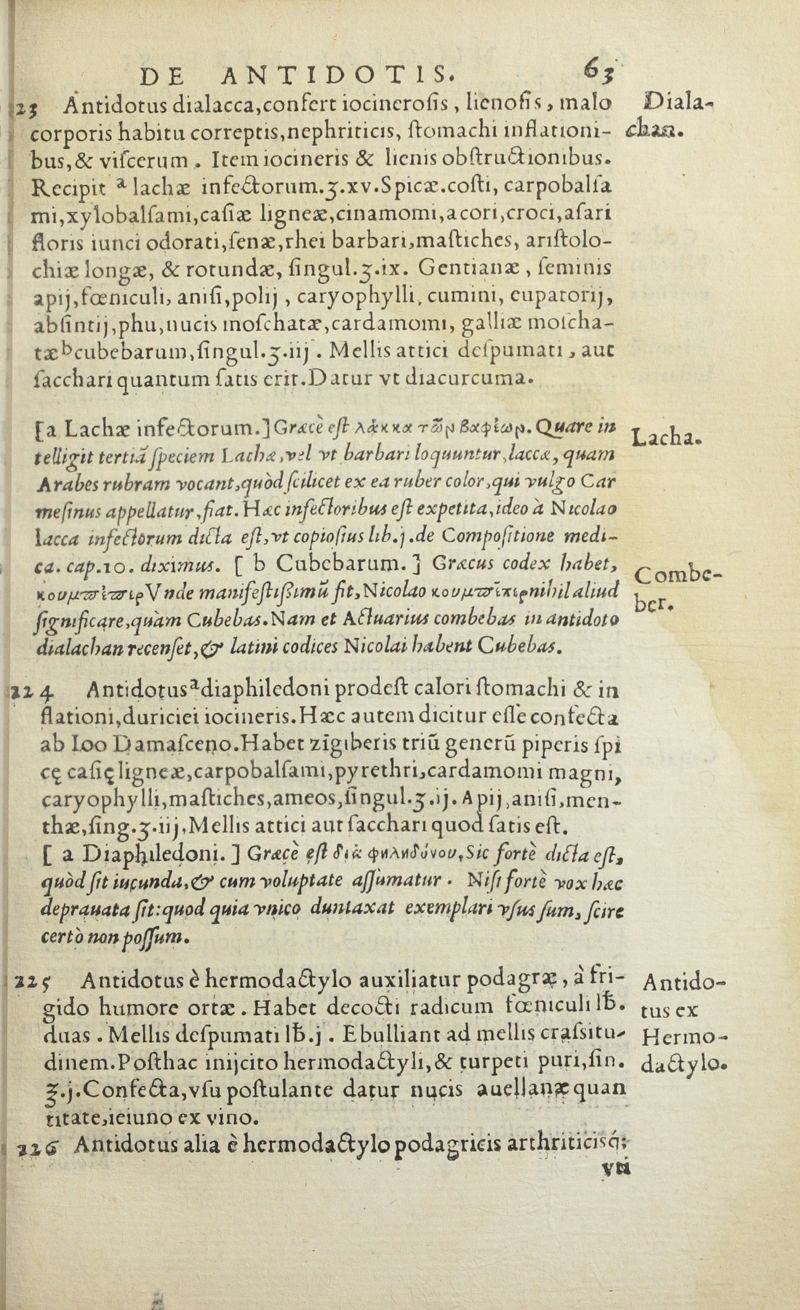 DE ANTIDOTIS. 63
23 Antidotus dialacca,confert iocinerosis, lienosis, malo
Diala-
corporis habitu correptis,nephriticis, ſtomachi inflationi-
chan.
bus,& viſcerum. Item iocineris & lienis obſtructionibus.
Recipit ᵃ lachæ infectorum.ʒ.xv.Spicæ.coſti, carpobalſa
mi,xylobalſami,caſiæ ligneæ,cinamomi,acori,croci,aſari
floris iunci odorati,ſenæ,rhei barbari,maſtiches, ariſtolo-
chiæ longæ, & rotundæ, ſingul.ʒ.ix. Gentianæ, ſeminis
apij,fœniculi, aniſi,polij, caryophylli, cumini, eupatorij,
abſintij,phu,nucis moſchatæ,cardamomi, galliæ moſcha-
tæ ᵇcubebarum,ſingul.ʒ.iij. Mellis attici deſpumati, aut
ſacchari quantum ſatis erit.Datur vt diacurcuma.
[a Lachæ infectorum.] Græcè eſt λάκκα τῶν βαφέων. Quare in
Lacha.
telligit tertiã ſpeciem Lachæ,vel vt barbari loquuntur,laccæ, quam
Arabes rubram vocant,quòd ſcilicet ex ea ruber color,qui vulgo Car
meſinus appellatur,fiat. Hæc infectoribus eſt expetita,ideo à Nicolao
lacca infectorum dicta eſt,vt copioſius lib.j.de Compoſitione medi-
ca. cap.10. diximus. [ b Cubebarum. ] Græcus codex habet,
Combe-
κουμπίπερ Vnde manifeſtiſſimũ fit,Nicolao κουμπίπερ nihil aliud
ber.
ſignificare,quàm Cubebas.Nam et Actuarius combebas in antidoto
dialachan recenſet,& latini codices Nicolai habent Cubebas.
224 Antidotusᵃdiaphiledoni prodeſt calori ſtomachi & in
flationi,duriciei iocineris.Hæc autem dicitur eſſe confecta
ab Ioo Damaſceno.Habet zĩgiberis triũ generũ piperis ſpi
cę caſię ligneæ,carpobalſami,pyrethri,cardamomi magni,
caryophylli,maſtiches,ameos,ſingul.ʒ.ij. Apij,aniſi,men-
thæ,ſing.ʒ.iij,Mellis attici aut ſacchari quod ſatis eſt.
[ a Diaphiledoni. ] Græcè eſt διὰ φιληδόνου, Sic fortè dicta eſt,
quòd ſit iucunda,& cum voluptate aſſumatur. Niſi fortè vox hæc
deprauata ſit:quod quia vnico duntaxat exemplari vſus ſum, ſcire
certò non poſſum.
225 Antidotus è hermodactylo auxiliatur podagræ, à fri-
Antido-
gido humore ortæ. Habet decocti radicum fœniculi ℔.
tus ex
duas. Mellis deſpumati ℔.j. Ebulliant ad mellis craſsitu-
Hermo-
dinem.Poſthac inijcito hermodactyli,& turpeti puri,ſin.
dactylo.
ʒ.j.Confecta,vſu poſtulante datur nucis auellanæ quan
titate,ieiuno ex vino.
226 Antidotus alia è hermodactylo podagricis arthriticisq;
vti